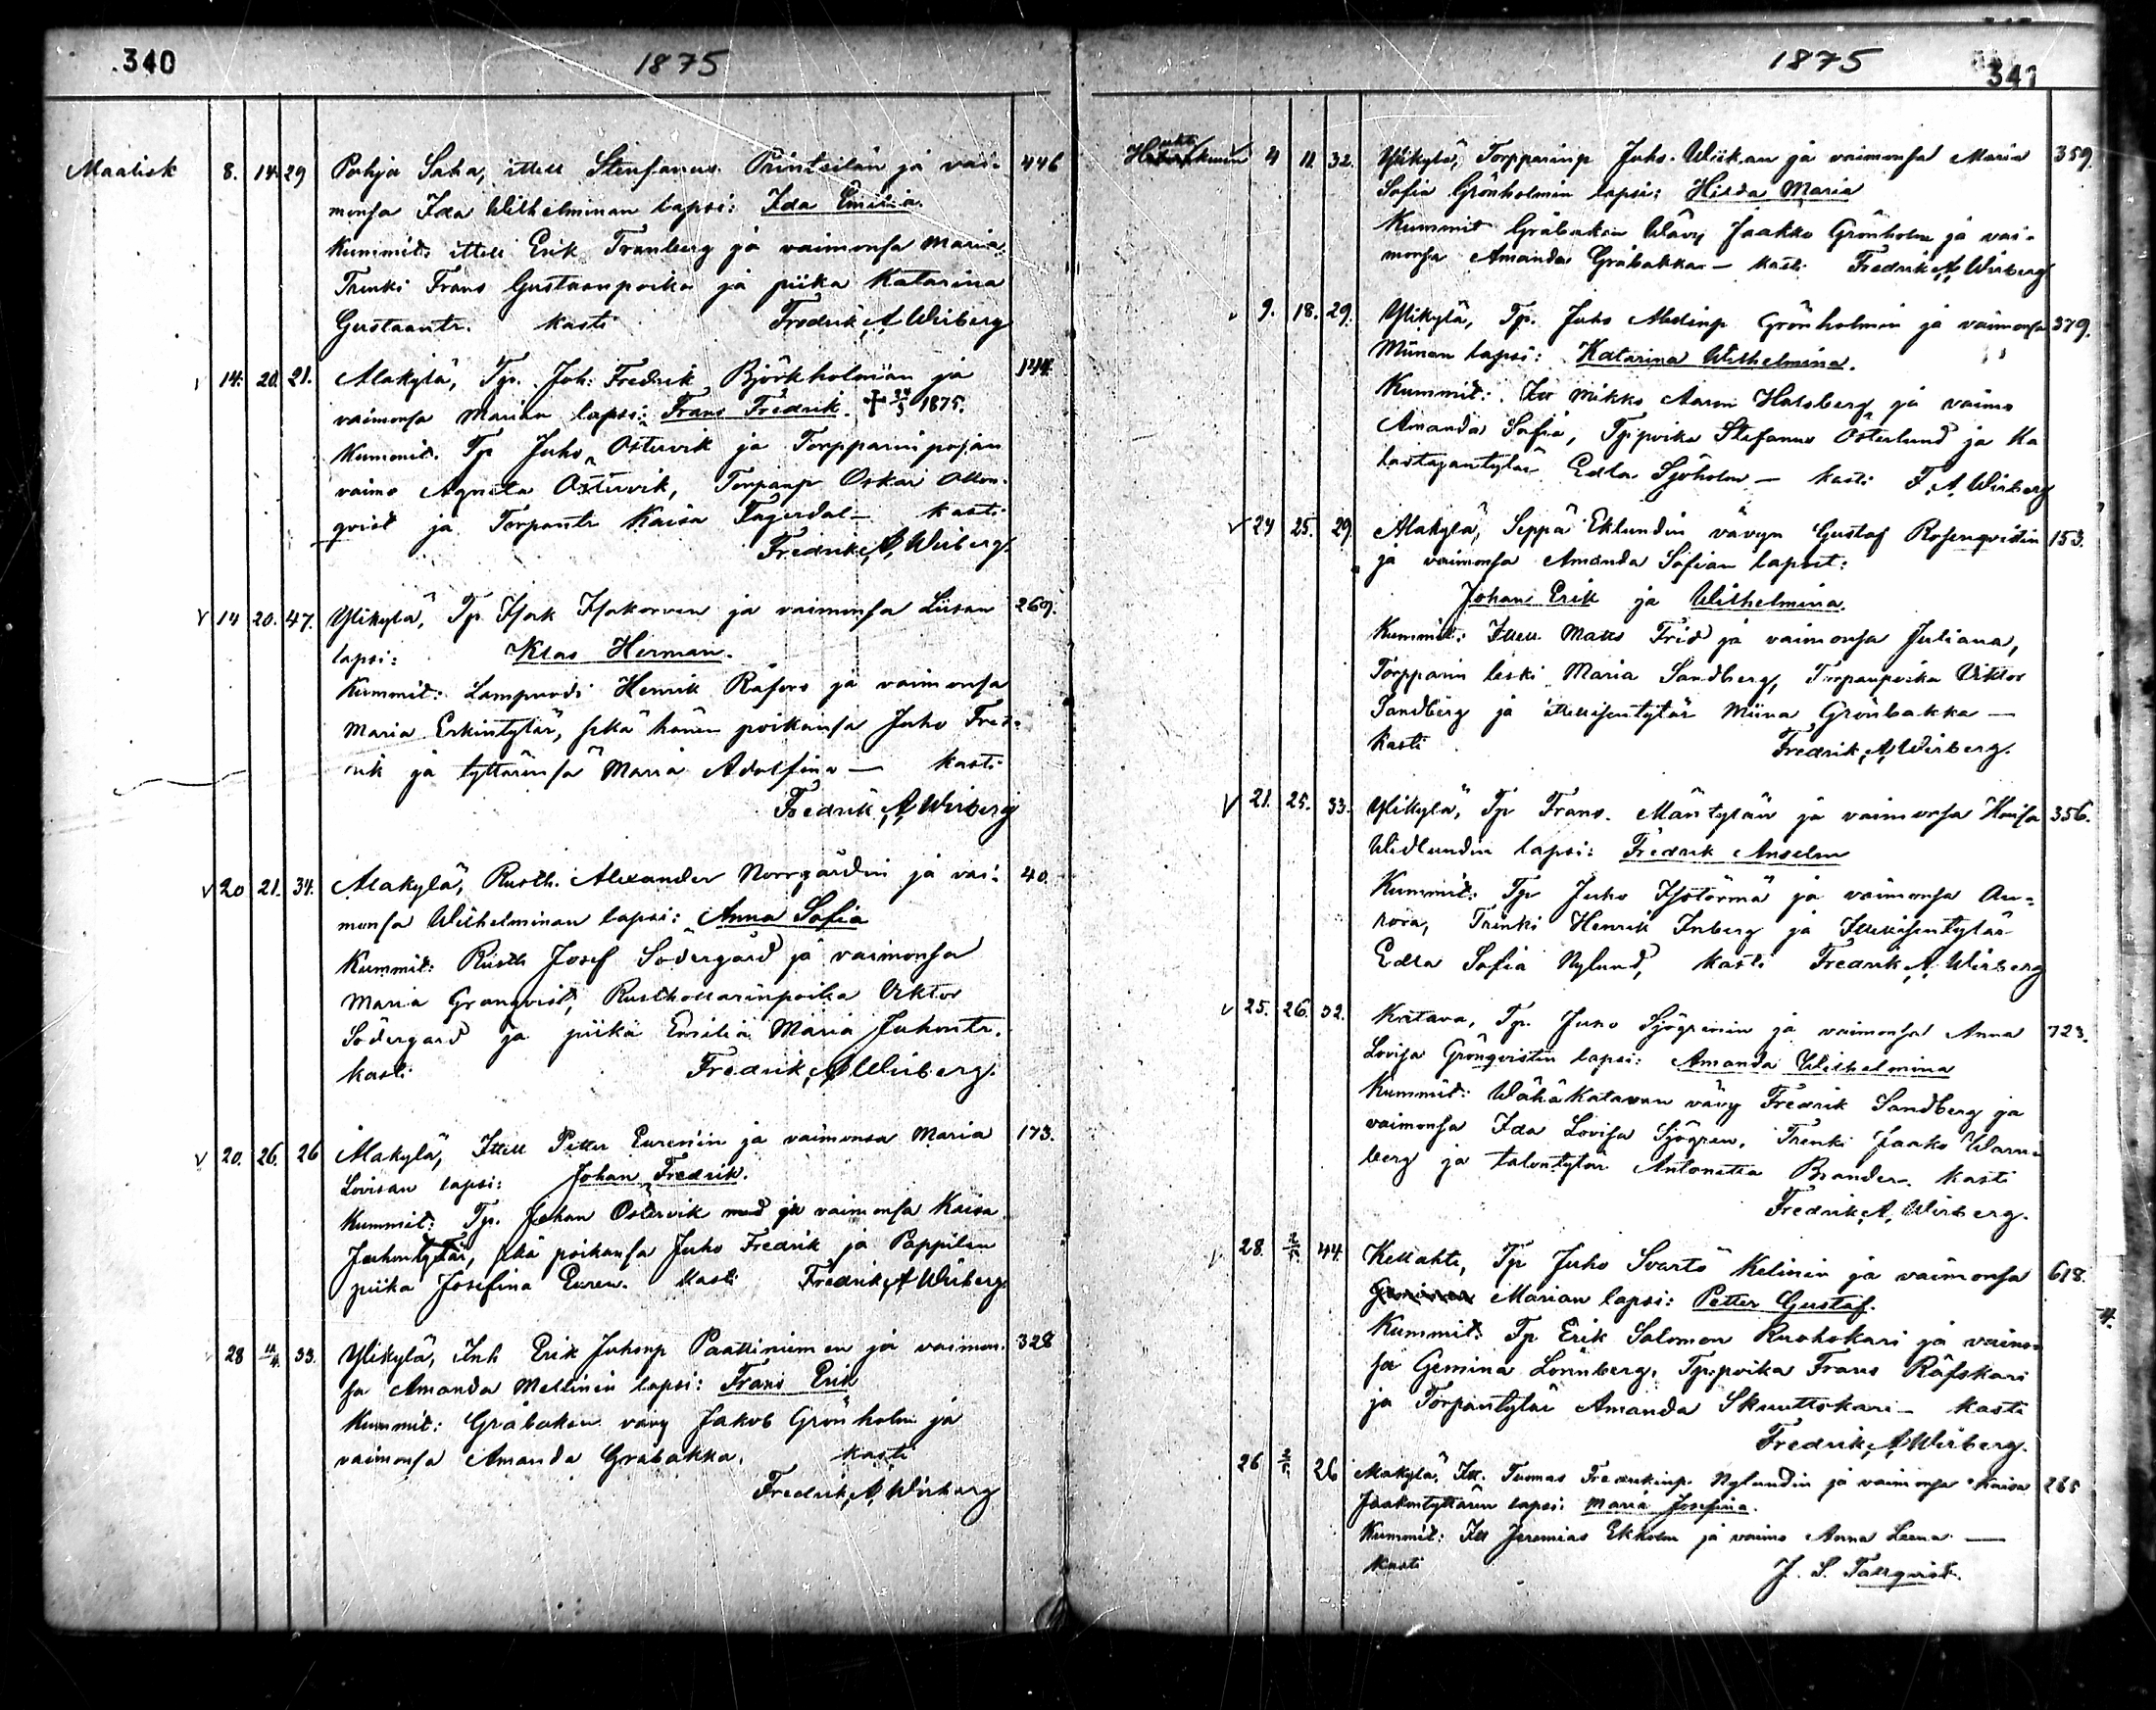 340
1875
Maalisk 8. 14. 29 Pohja Saha, ittell Stenfanus Printsilän ja vai- 446
monsa Ida Wilhelminan lapsi: Ida Emilia.
Kummit: ittell Erik Tranberg ja vaimonsa Maria.
Trenki Frans Gustaanpoika ja piika Katarina
Gustaantr. kasti Fredrik A. Wirberg
14. 20. 21. Alakylä, Tp. Joh: Fredrik Björkholmin ja 144
vaimonsa Marian lapsi: Frans Fredrik. 1875.
Kummit. Tp Juho Östervik ja Torpparinpojan
vaimo Agneta Östervik, Torpanp Oskar
qvist ja Torpantr Kaisa Fagerdal — kasti
Fredrik A. Wirberg.
V 14 20. 47. Ylikylä, Tp. Isak Isakorven ja vaimonsa Liisan 269.
lapsi: Klas Herman.
Kummit: Lampuodi Henrik Räfors ja vaimonsa
Maria Erkintytär, sekä hänen poikansa Juho Fred-
rik ja tyttärensä Maria Adolfina — kasti
Fredrik A. Wirberg
V 20 21. 34. Alakylä, Rusth. Alexander Norrgårdin ja vai- 40.
monsa Wilhelminan lapsi: Anna Sofia
Kummit: Rusth Josef Södergård ja vaimonsa
Maria Granqvist, Rusthollarinpoika Viktor
Södergard ja piika Emilia Maria Juhontr.
kasti Fredrik A Wirberg.
V 20. 26. 26 Alakylä, Ittell Petter Eurenin ja vaimonsa Maria 173.
Lovisan lapsi: Johan Fredrik.
Kummit: Tp. Johan Östervik ja vaimonsa Kaisa
Juhontytär, sekä poikansa Juho Fredrik ja Pappilan
piika Josefina Euren. kasti Fredrik A Wirberg.
28 33. Ylikylä, Inh Erik Juhonp Paattiniemen ja vaimon- 328
sa Amanda Mellinin lapsi: Frans Erik
Kummit: Gråbakan vävy Jakob Grönholm ja
vaimonsa Amanda Grabakka. kasti
Fredrik A. Wirberg
1875
341
Huhtikuun 4 11. 32. Ylikylä, Torpparinp Juho Wiikan ja vaimonsa Maria 359.
Sofia Grönholmin lapsi: Hilda Maria
Kummit Gråbakan Vävy Jaakko Grönholm ja vai-
monsa Amanda Gråbakka — kasti Fredrik A. Wirberg
9. 18. 29. Ylikylä, Tp. Juho Grönholmin ja vaimonsa 379.
Miinan lapsi: Katarina Wilhelmina.
Kummit: Mikko Aaron Halsberg ja vaimo
Amanda Sofia, Tpspoika Stefanus Österlund ja Ka
lastajantytär Edla Sjöholm — kasti F. A. Wirberg
V 24 25. 29. Alakylä, Seppä Eklundin vävyn Gustaf Rosenqvistin 153.
ja vaimonsa Amanda Sofian lapset:
Johan Erik ja Wilhelmina.
Kummit: Ittell Matts Frid ja vaimonsa Juliana,
Torpparin leski Maria Sandberg, Torpanpoika Viktor
Sandberg ja ittellisentytär Miina Grönbakka —
kasti Fredrik A. Wirberg.
V 21. 25. 33. Ylikylä, Tp Frans. Mäntylän ja vaimonsa 356.
Widlundin lapsi: Fredrik Anselm
Kummit: Tp Juho Isotörmä ja vaimonsa Au-
rora, Trenki Henrik Inberg ja Ittellisentytär
Edla Sofia Nylund, kasti Fredrik A. Wirberg
V 25. 26. 32. Katava, Tp. Juho Sjögrenin ja vaimonsa Anna 723.
Lovisa Grönqvistin lapsi: Amanda Wilhelmina
Kummit: Wähä Katavan vävy Fredrik Sandberg ja
vaimonsa Ida Lovisa Sjögren, Trenki Jaako Warn-
berg ja talontytär Antonetta Brander. kasti
Fredrik A. Wirberg.
28. 2/5 44. Kellahti, Tp Juho Svartö Kelinin ja vaimonsa 618.
Marian lapsi: Petter Gustaf.
Kummit: Tp Erik Salomon Ruohokari ja vaimon
sa Gemina Lönnberg, Tp:poika Frans Räfskari
ja Torpantytär Amanda Skuuttskari — kasti
Fredrik A. Wirberg.
26 2/5 26 Alakylä, Itt. Tuomas Fredrikinp. Nylundin ja vaimonsa Kaisa 265
Jaakontyttären lapsi: Maria Josefina.
Kummit: Itt Jeremias Ekholm ja vaimo Anna Leena —
kasti J. S. Tallqvist.